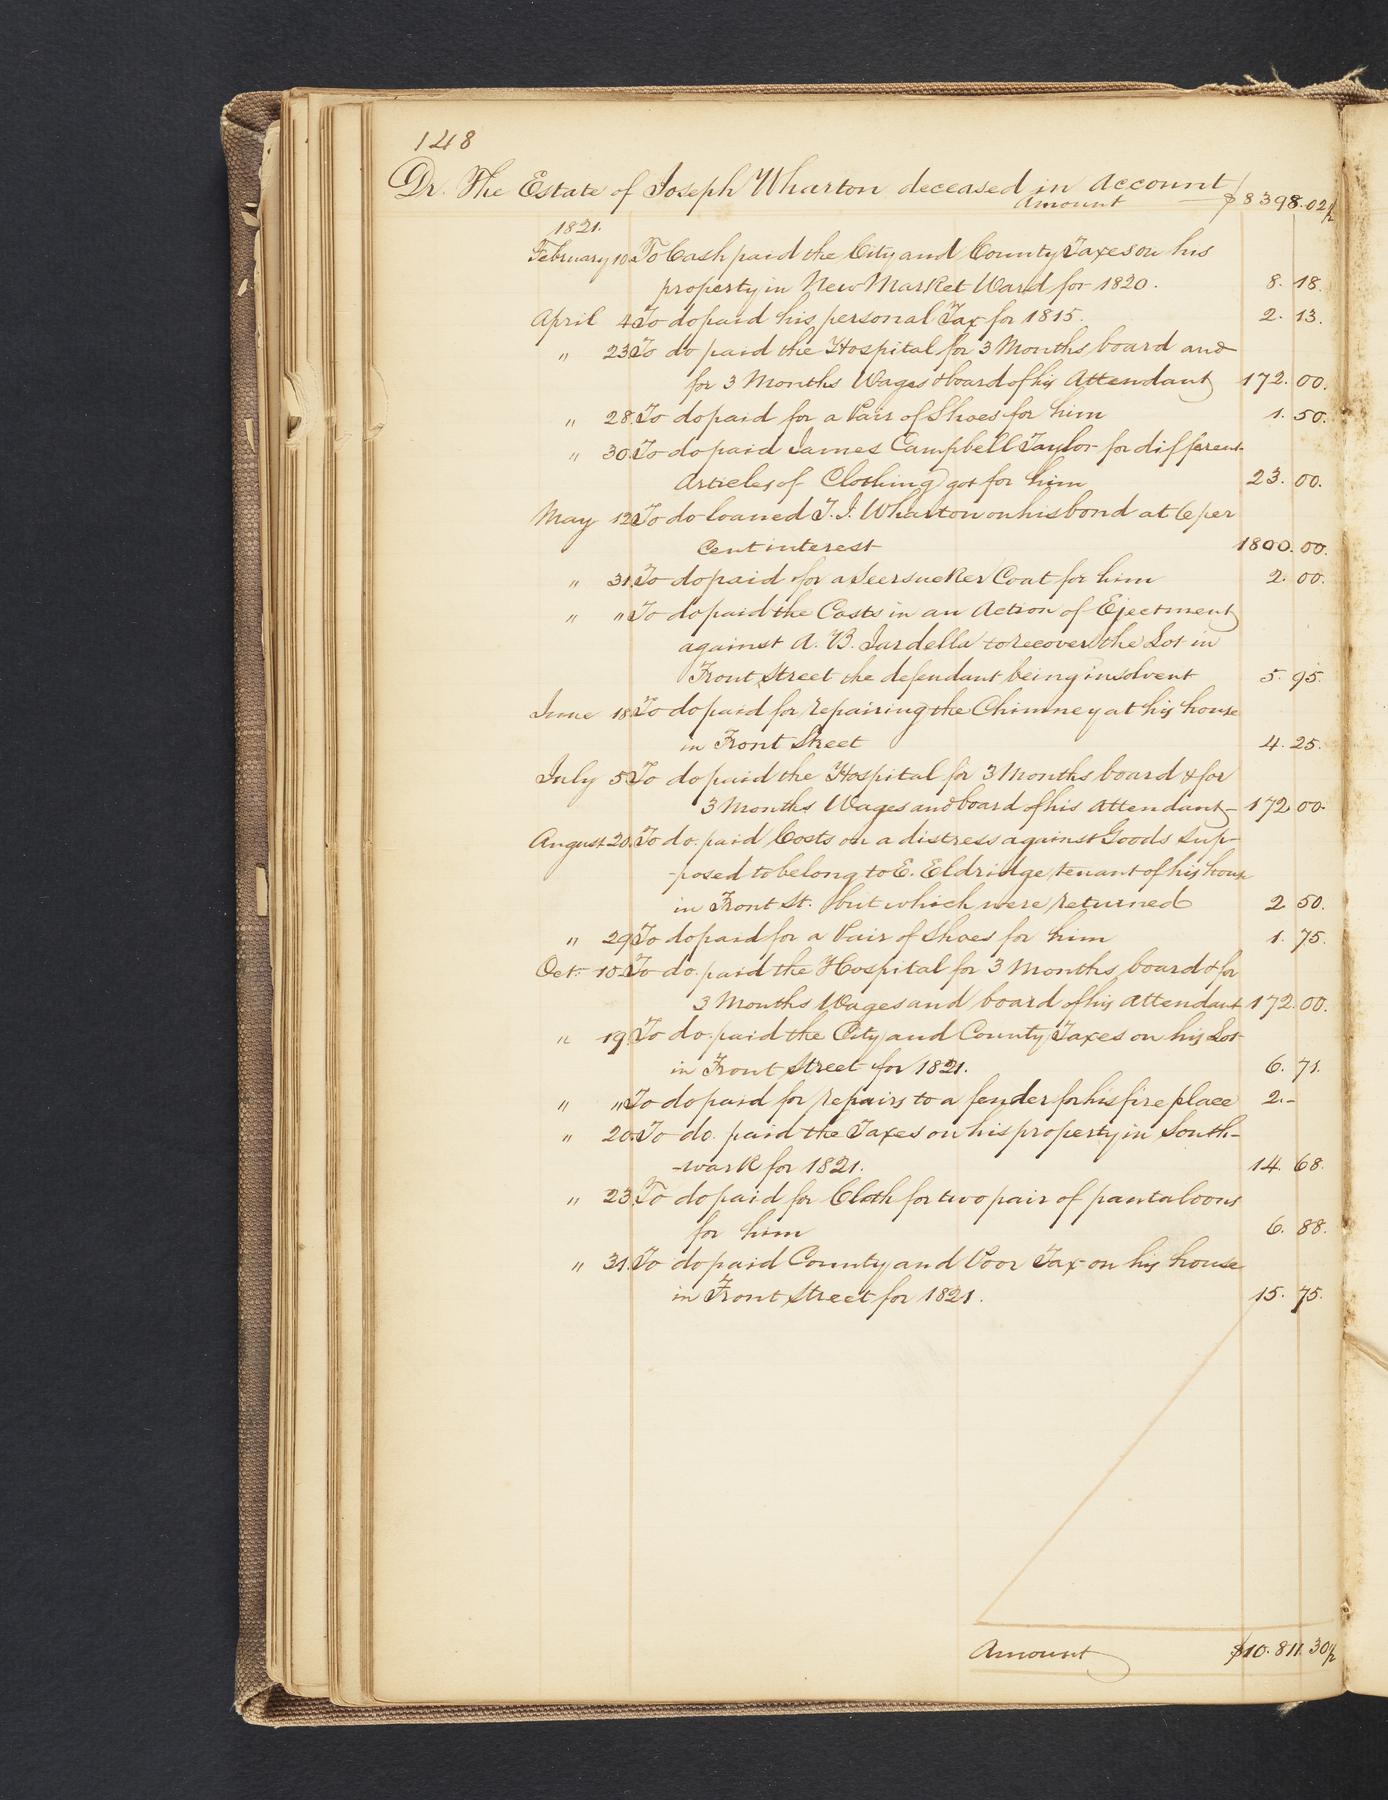 148
Dr. The Estate of Joseph Wharton deceased in Account
Amount — $8398.02½
1821.
February 10 To Cash paid the City and County Taxes on his
property in New Market Ward for 1820. 8. 18.
April 4 To do paid his personal Tax for 1815. 2. 13.
" 23 To do paid the Hospital for 3 Months board and
for 3 Months Wages & board of his Attendant 172. 00.
" 28. To do paid for a Pair of Shoes for him 1. 50.
" 30 To do paid James Campbell Taylor for different
Articles of Clothing got for him 23. 00.
May 12 To do loaned T. I. Wharton on his bond at 6 per
Cent interest 1800. 00.
" 31 To do paid for a Seersucker Coat for him 2. 00.
" " To do paid the Costs in an Action of Ejectment
against A. B. Iardella to recover the Lot in
Front Street the defendant being insolvent 5. 95.
June 18 To do paid for repairing the Chimney at his house
in Front Street 4. 25.
July 5 To do paid the Hospital for 3 Months board & for
3 Months Wages and board of his Attendant – 172 00.
August 20. To do. paid Costs on a distress against Goods sup-
-posed to belong to E. Eldridge, tenant of his house
in Front St. but which were returned 2 50.
" 29 To do paid for a Pair of Shoes for him 1. 75.
Oct. 10 To do. paid the Hospital for 3 Months board & for
3 Months Wages and board of his Attendant 172. 00.
" 19 To do. paid the City and County Taxes on his Lot
in Front Street for 1821. 6. 71.
" " To do paid for repairs to a fender for his fire place 2. –
" 20. To do. paid the Taxes on his property in South-
-wark for 1821. 14. 68.
" 23. To do paid for Cloth for two pair of pantaloons
for him 6. 88.
" 31. To do paid County and Poor Tax on his house
in Front Street for 1821. 15. 75.
Amount $10.811.30½